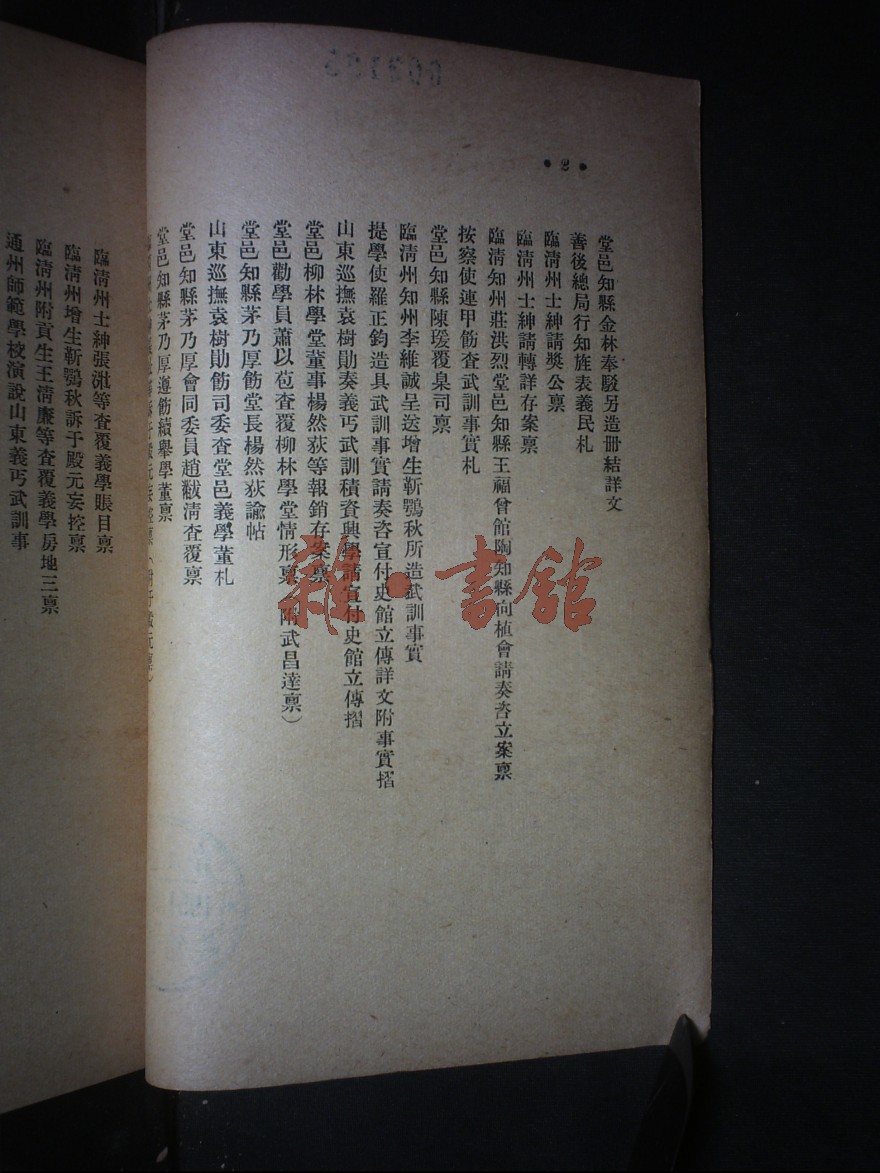 • 2 •
堂邑知縣金林奉駁另造册結詳文
善後總局行知旌表義民札
臨清州士紳請獎公稟
臨清州士紳請轉詳存案稟
臨清知州莊洪烈堂邑知縣王福曾館陶知縣向植會請奏咨立案稟
按察使連甲飭查武訓事實札
堂邑知縣陳瑗覆臬司稟
臨清州知州李維諴呈送增生靳鶚秋所造武訓事實
提學使羅正鈞造具武訓事實請奏咨宣付史館立傳詳文附事實摺
山東巡撫袁樹勛奏義丐武訓積資興學請宣付史館立傳摺
堂邑柳林學堂董事楊然荻等報銷存案稟
堂邑勸學員蕭以苞查覆柳林學堂情形稟（附武昌達稟）
堂邑知縣茅乃厚飭堂長楊然荻諭帖
山東巡撫袁樹勛飭司委查堂邑義學董札
堂邑知縣茅乃厚會同委員趙黻清查覆稟
堂邑知縣茅乃厚遵飭續舉學董稟
臨清州士紳張泚等查覆義學賬目稟
臨清州增生靳鶚秋訴于殿元妄控稟
臨清州附貢生王清廉等查覆義學房地三稟
通州師範學校演說山東義丐武訓事
雜·書館